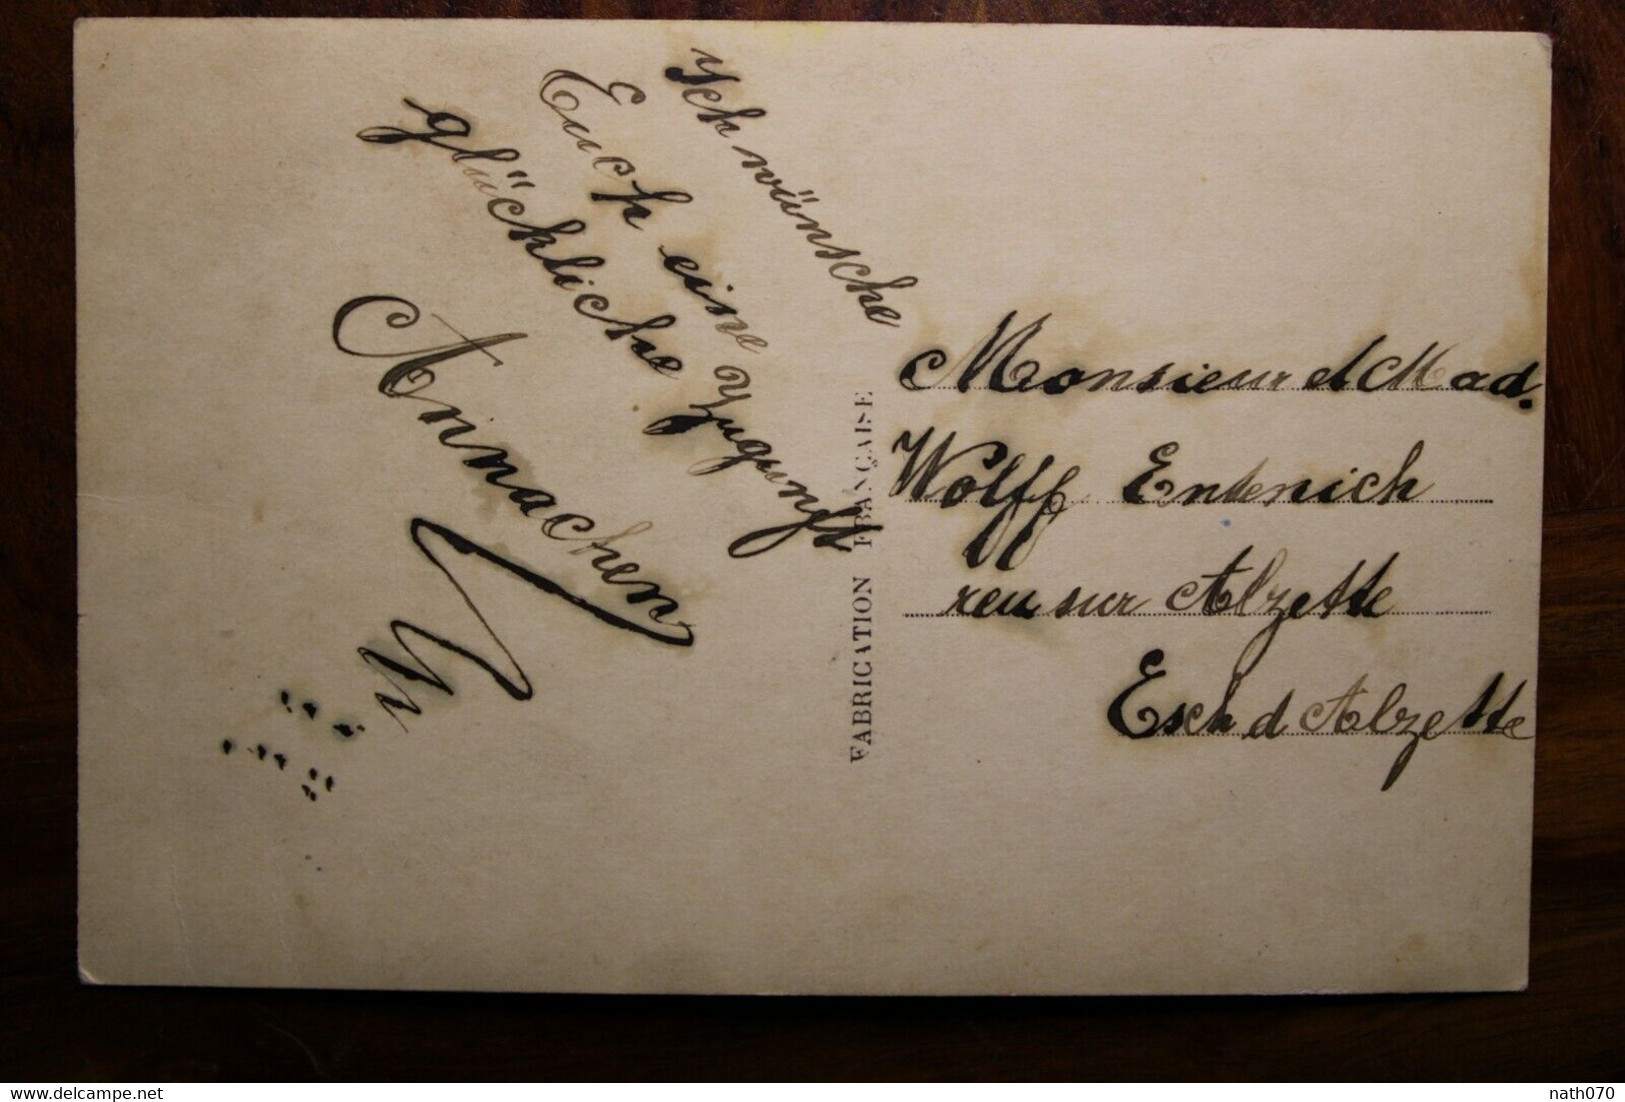 Ich wünsche
Euch eine
glückliche Zugunft
Annachen
FABRICATION FRANÇAISE
Monsieur et Mad.
Wolff Entenich
reu sur Alzette
Esch d Alzette
nath070